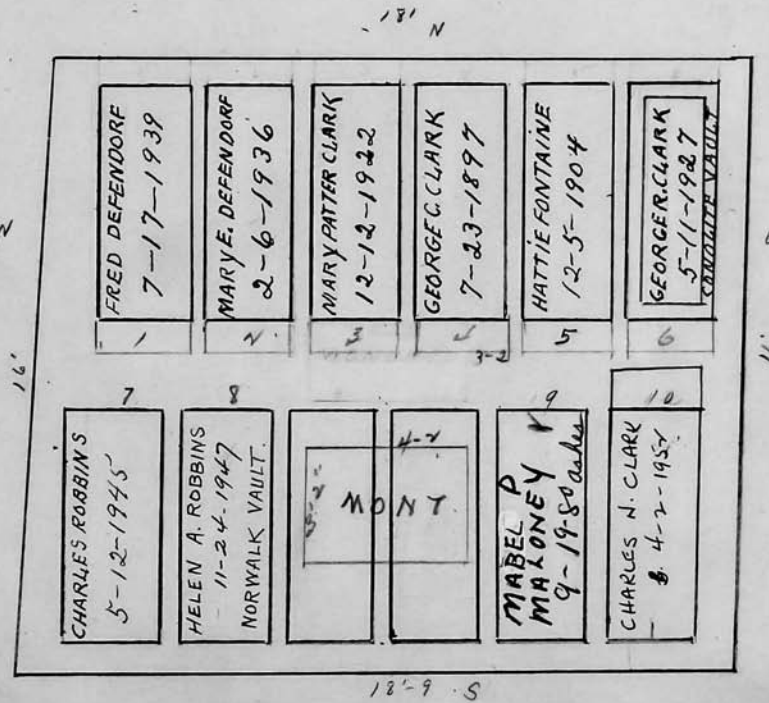 18' N
FRED DEFENDORF
7-17-1939
MARY E. DEFENDORF
2-6-1936
MARY PATTER CLARK
12-12-1922
GEORGE C. CLARK
7-23-1897
HATTIE FONTAINE
12-5-1904
GEORGE R. CLARK
5-11-1927
VAULT
1
2
3
4
5
6
3-2
16'
7
8
9
10
CHARLES ROBBINS
5-12-1945
HELEN A. ROBBINS
11-24-1947
NORWALK VAULT.
4-2
MONT
MABEL P
MALONEY
9-19-80 ashes
CHARLES N. CLARK
4-2-1952
18'-9 S